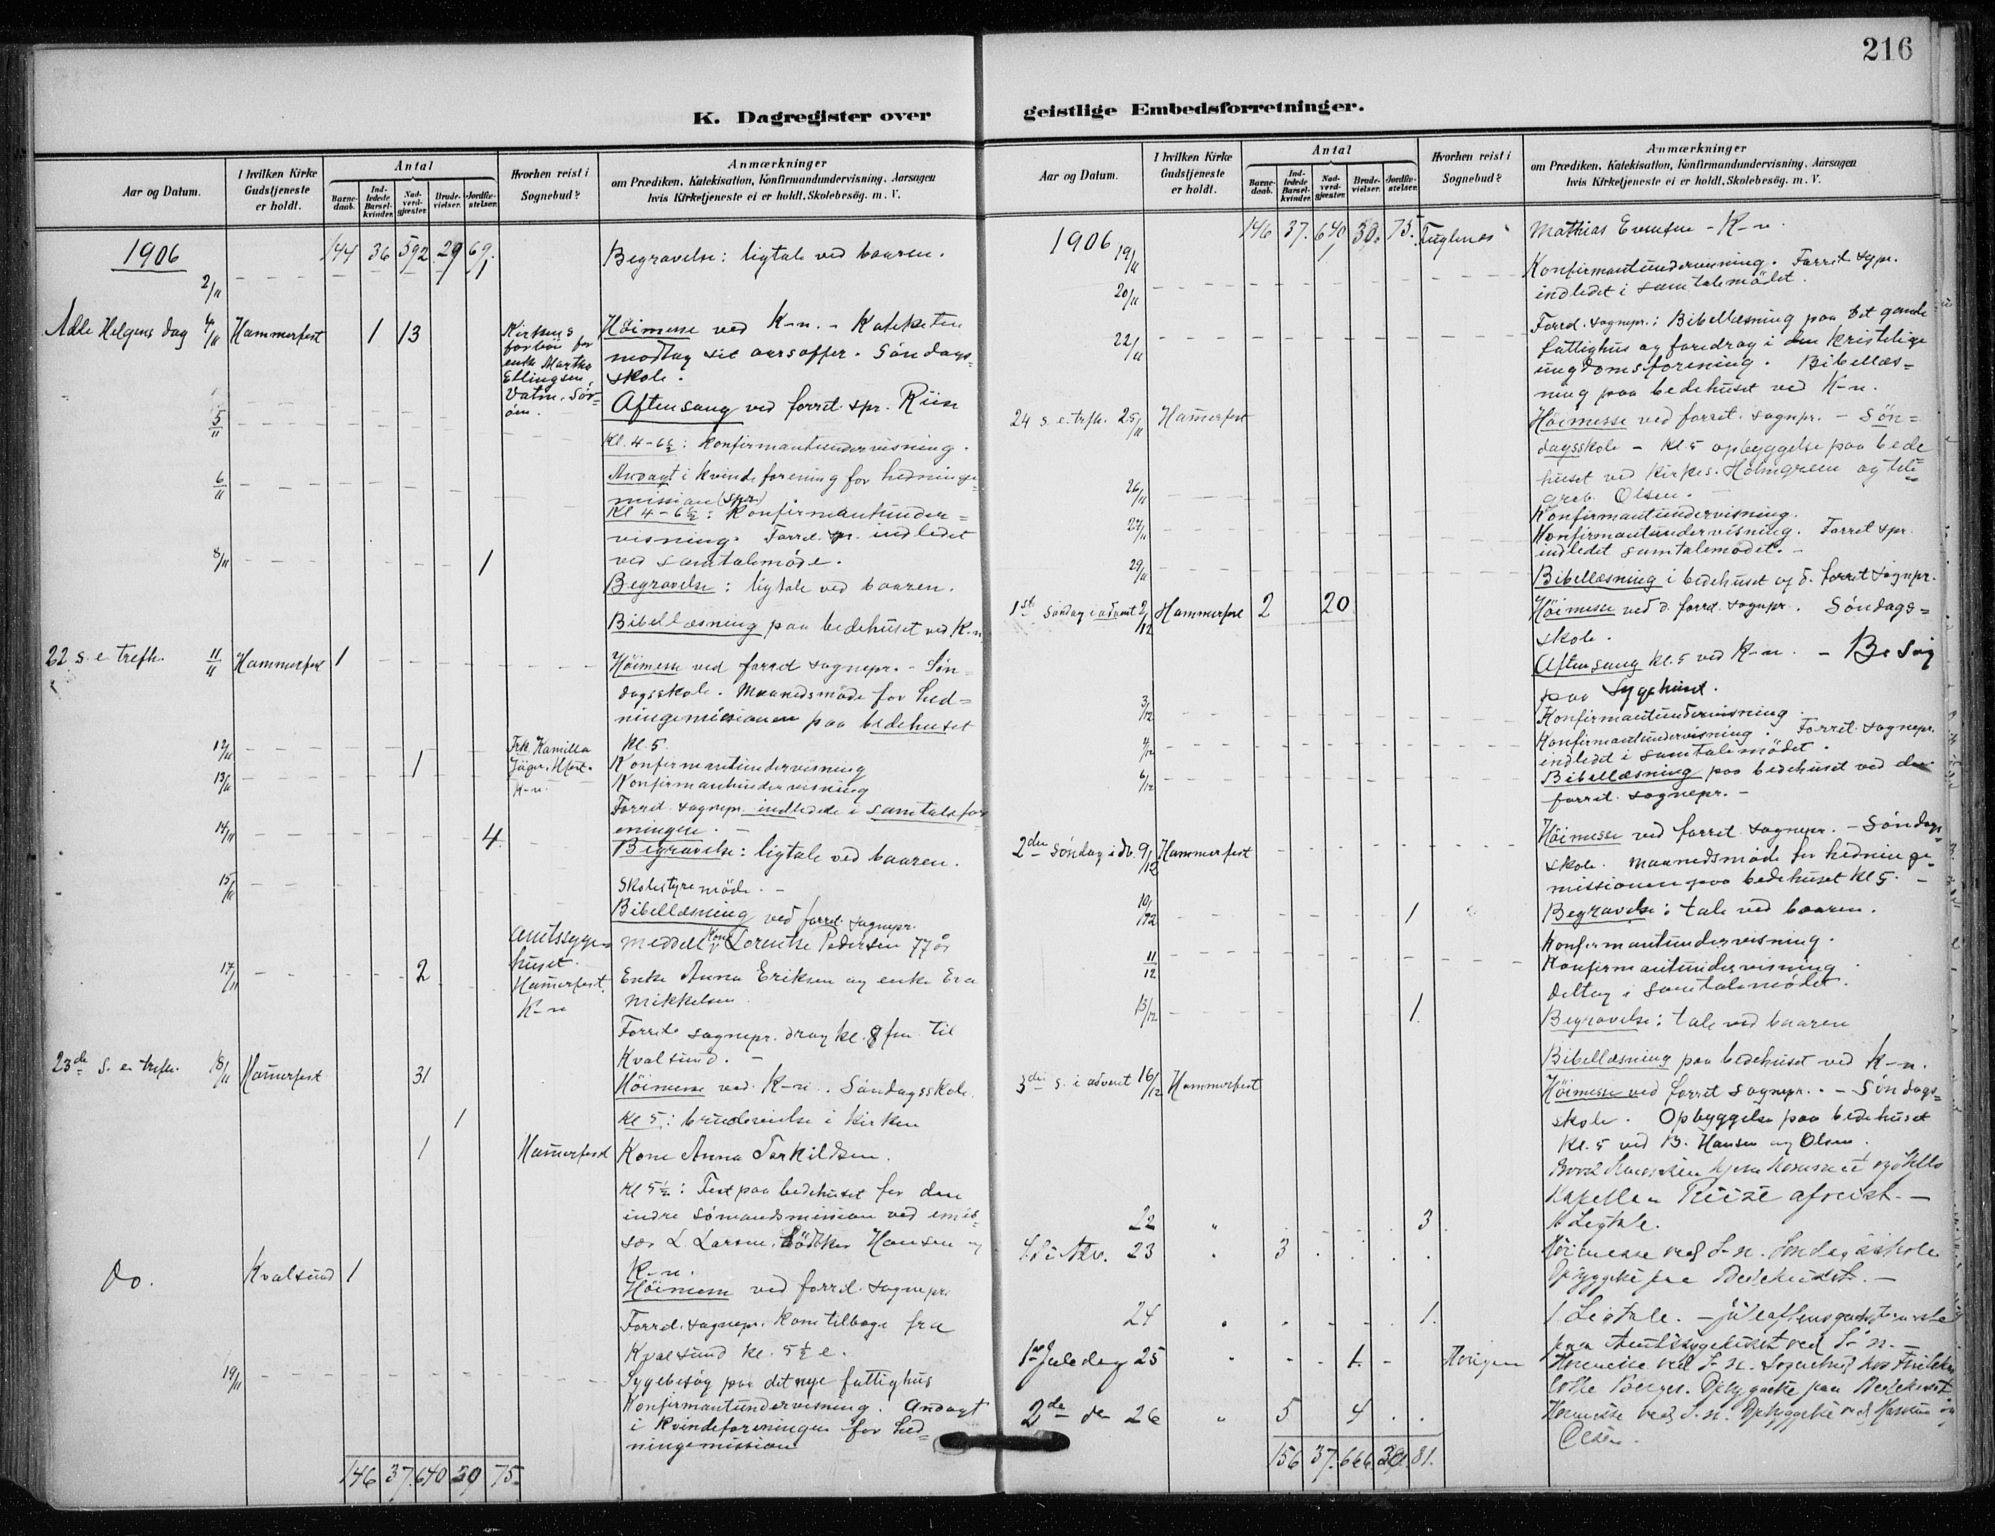 216
K. Dagregister over geistlige Embedsforretninger.
Aar og Datum.
I hvilken Kirke Gudstjeneste er holdt.
Antal
Barnedaab.
Indledede Barselkvinder.
Nadverdgjæster.
Brudevielser.
Jordfæstelser.
Hvorhen reist i Sognebud?
Anmærkninger
om Prædiken, Katekisation, Konfirmandundervisning, Aarsagen hvis Kirketjeneste ei er holdt, Skolebesøg. m. V.
1906 144 36 592 29 69.
2/11 Begravelse: ligtale ved baaren.
Alle Helgens dag 4/11 Hammerfest 1 13
Kirkens forbøn for enke Martha Ellingsen,
Høimesse ved K-n. - Kateketen
modtog sit aarsoffer. Søndags-
skole.
Aftensang ved forret. spr. Riise
5/11 Kl. 4-6½: konfirmantundervisning.
6/11 Andagt i kvindeforening for hedninge-
mission (spr.)
Kl 4-6½: Konfirmantunder-
visning. Forrd. spr. indledet
ved samtalemøde.
8/11 1 Begravelse: ligtale ved baaren.
Bibellæsning paa bedehuset ved K-n
22 s. e. trefh. 11/11 Hammerfest 1
Høimesse ved forrd sognepr. - Søn-
dagsskole. Maanedsmøde for hed-
ningemissionen paa bedehuset
Kl. 5.
12/11 1 Frk Kamilla
K-n.
Konfirmantundervisning
13/11 Konfirmantundervisning
Forrd. sognepr. indledede i samtalefor-
eningen. -
14/11 4 Begravelse: ligtale ved baaren.
Skolestyremøde. -
15/11 Bibellæsning ved forrd. sognepr.
17/11 2 Amtssyge-
huset.
Hamerfest.
K-n
meddelt Kone Lorentse Pedersen 77 år
Enke Anna Eriksen og enke Eva
Mikkelsen
Forrd. sognepr. drog kl. 8 fm til
Kvalsund. -
23de S. e. trefh. 18/11 Hamerfest 31
Høimesse ved K-n. Søndagsskole.
1 Kl 5: brudevielse i kirken
1 Hamerfest Kone Anna Torkildsen.
Kl 5½: Fest paa bedehuset for den
indre sømandsmission ved emis-
sær L Larsen, Bødker Hansen og
K-n.
Do. Kvalsund 1
Høimesse ved forrd. sognepr.
Forrd. sognepr. kom tilbage fra
Kvalsund kl. 5½ e.
19/11 Sygebesøg paa det nye fattighus
Konfirmantundervisning. Andagt
i kvindeforeningen for hed-
ningemission
146 37. 640 30 75.
Aar og Datum.
I hvilken Kirke Gudstjeneste er holdt.
Antal
Barnedaab.
Indledede Barselkvinder.
Nadverdgjæster.
Brudevielser.
Jordfæstelser.
Hvorhen reist i Sognebud?
Anmærkninger
om Prædiken, Katekisation, Konfirmandundervisning, Aarsagen hvis Kirketjeneste ei er holdt, Skolebesøg. m. V.
1906 146 37. 640 30. 75. Fuglenes Mathias Evensen - K-n.
19/11 Konfirmantundervisning. Forrd. sgpr.
indledet i samtalemødet.
20/11
22/11 Forrd. sognepr.: Bibellæsning paa det gamle
fattighus og foredrag i den Kristelige
ungdomsforening. Bibellæs-
ning paa bedehuset ved K-n.
24 s. e. trfh. 25/11 Hamerfest Høimesse ved forret. sognpr. - Søn-
dagsskole - Kl 5 opbyggelse paa bede
huset ved Kirkes. Holmgreen og tele
Olsen. -
26/11 Konfirmantundervisning.
27/11 Konfirmantundervisning. Forret spr.
indledet samtalemødet. -
29/11 Bibellæsning i bedehuset af d. forret sognpr.
1st Søndag i advent 2/12 Hammerfest 2 20 Høimesse ved d. forrd. sognpr. Søndags-
skole.
Aftensang kl. 5 ved K-n. - Besøg
paa Sygehuset.
3/12 Konfirmantundervisning
4/12 Konfirmantundervisning. Forret. sognepr.
indledet i samtalemødet.
6/12 Bibellæsning paa bedehuset ved den
forrd. sognepr. -
2den Søndag i Adv. 9/12 Hammerfest Høimesse ved forret sognepr. - Søndags-
skole. Maanedsmøde for hedninge-
missionen paa bedehuset kl 5. -
10/12 1 Begravelse: tale ved baaren.
Konfirmantundervisning.
11/12 Konfirmantundervisning
Deltog i samtalemødet.
13/12 1. Begravelse: tale ved baaren
Bibellæsning paa bedehuset ved K-n.
3die s. i advent 16/12 Hammerfest Høimesse ved forret sognepr. - Søndags-
skole. Opbyggelse paa bedehuset
Kl. 5 ved B. Hansen og Olsen.
afreist. -
22 " 3 Ligtale.
4 S i Adv. 23 " 3 Høimesse ved S-n. Søndagsskole
Opbyggelse paa Bedehuset. -
24 " 1. 1 Ligtale. - juleaftensgudstjeneste
paa Amtssygehuset ved S-n. -
1ste Juledag 25 " 1. Høimesse ved S-n.
Opbyggelse paa Bedehuset
2de do 26 " 5 4 Høimesse ved S-n. Opbyggelse ved Hansen og
Olsen.
156 37. 666 30. 81.